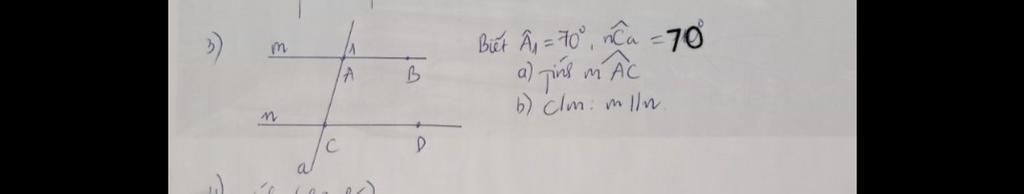 3)
m
1
A
B
n
C
D
a
Biết Â₁ = 70°, nĈa = 70°
a) Tính mÂC
b) C/m: m // n
4)